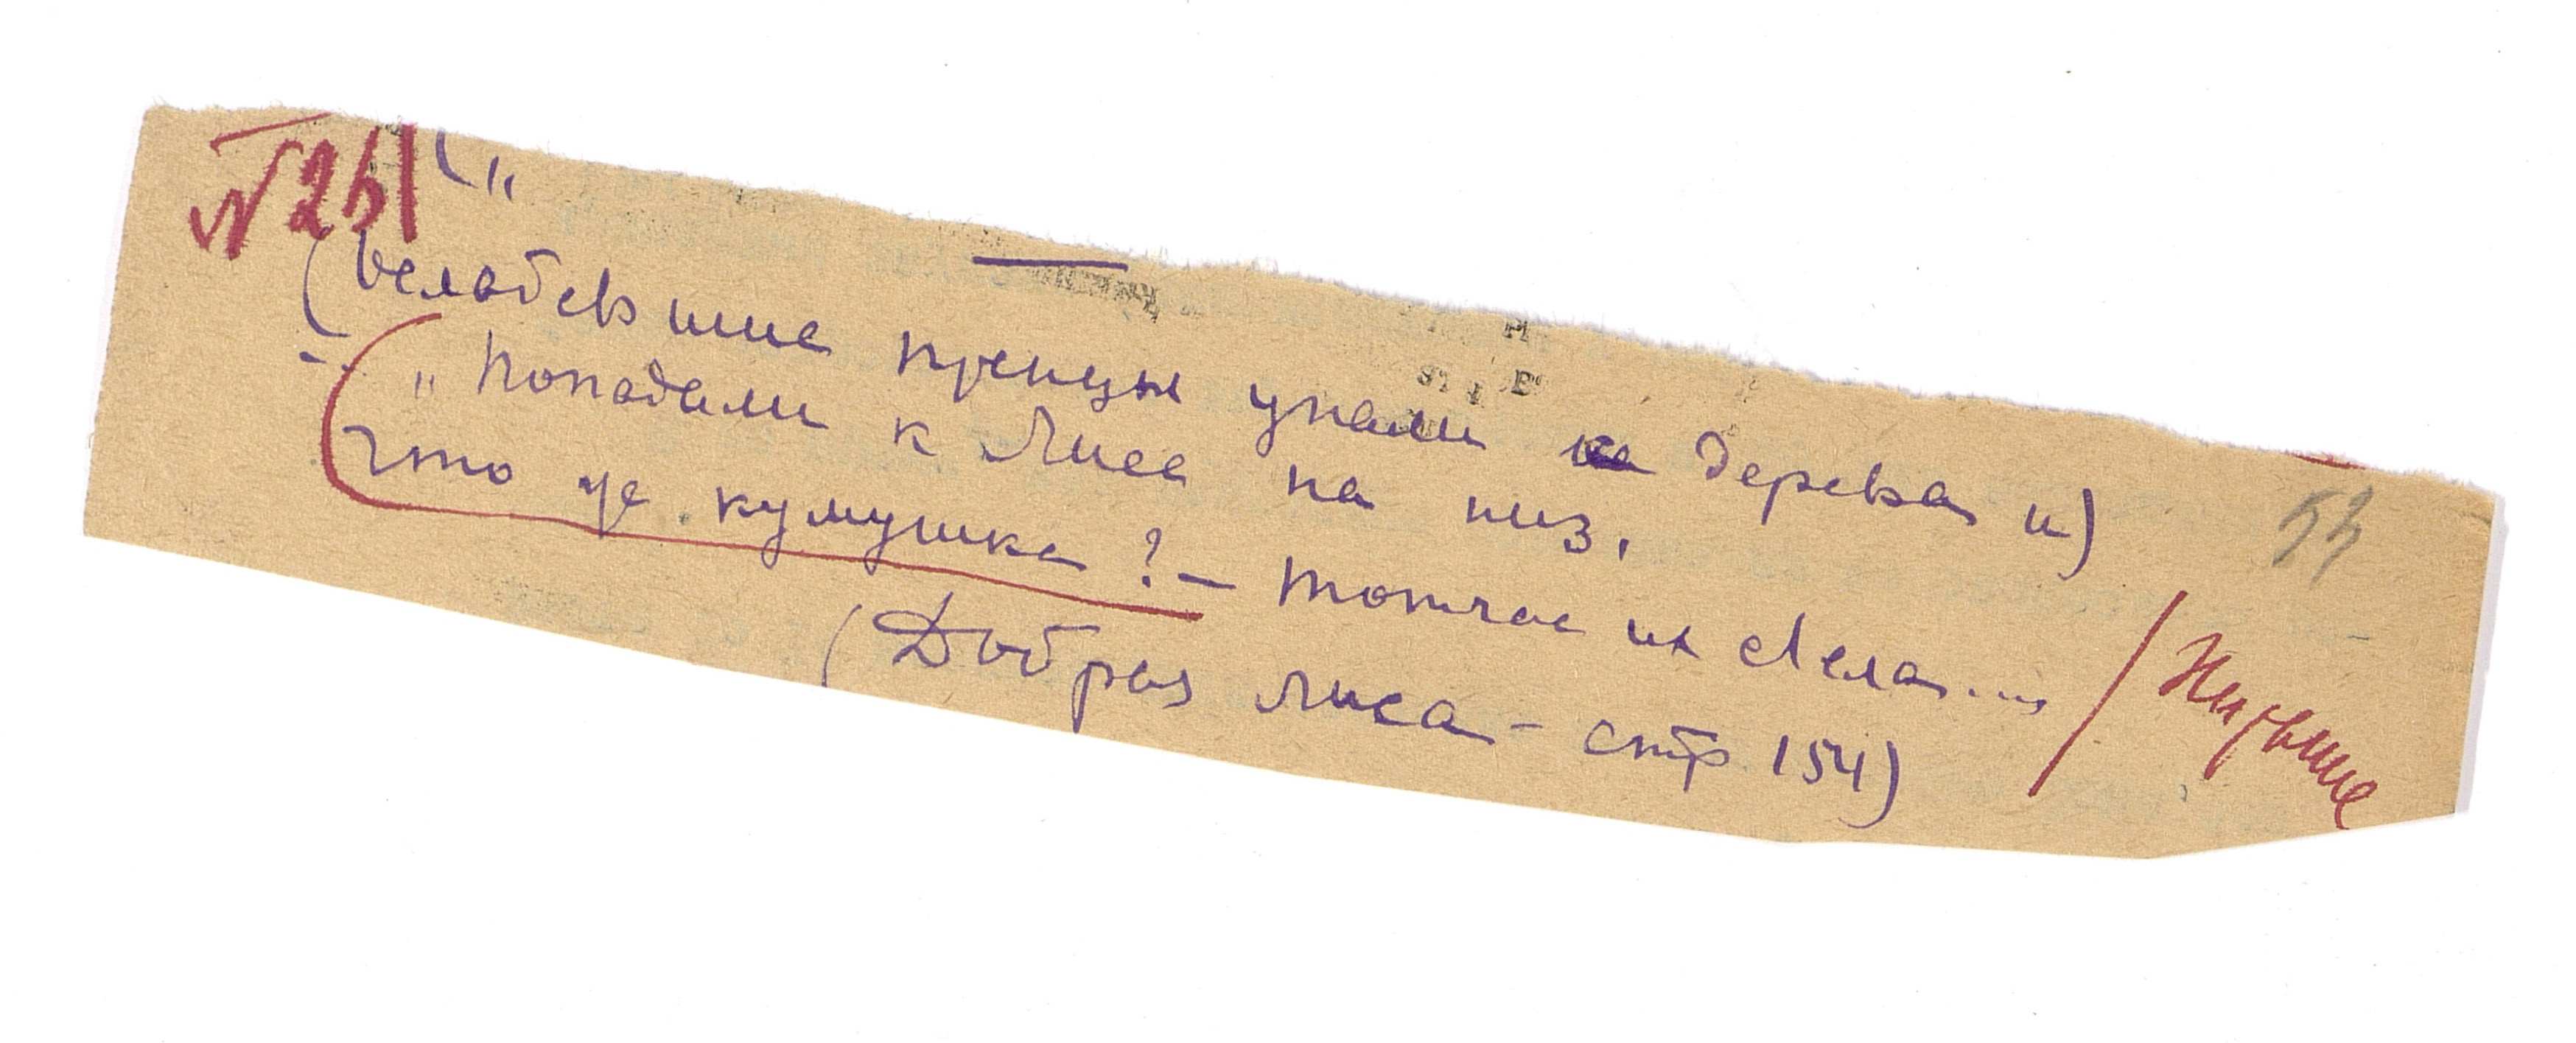 № 26
("
(ослабевшие птенцы упали с дерева и)
„Попадали к Лисе на низ,
Что же кумушка? – тотчас их съела...."
(Добрая лиса – стр 154)
53